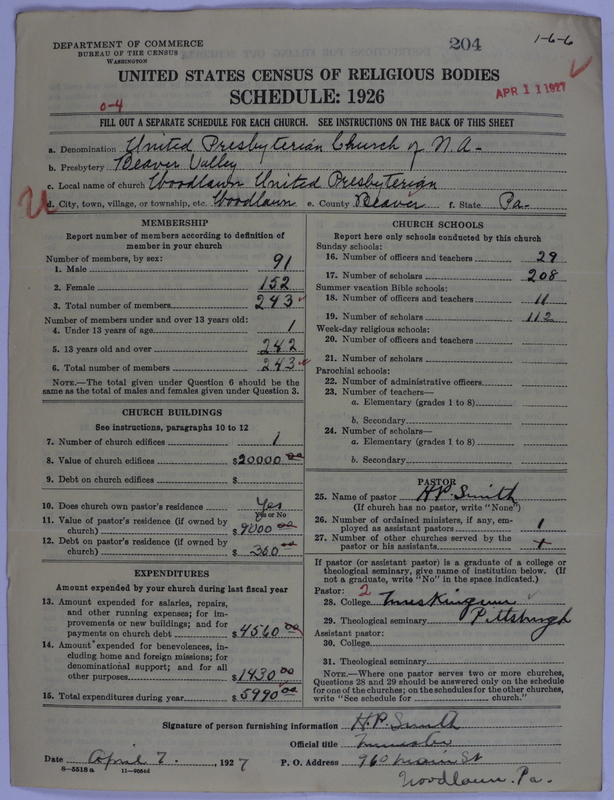 DEPARTMENT OF COMMERCE
BUREAU OF THE CENSUS
WASHINGTON
204
1-6-6
UNITED STATES CENSUS OF RELIGIOUS BODIES
SCHEDULE: 1926
APR 11 1927
0-4
FILL OUT A SEPARATE SCHEDULE FOR EACH CHURCH. SEE INSTRUCTIONS ON THE BACK OF THIS SHEET
a. Denomination United Presbyterian Church of N.A-
b. Presbytery Beaver Valley
c. Local name of church Woodlawn United Presbyterian
U d. City, town, village, or township, etc. Woodlawn e. County Beaver f. State Pa-
MEMBERSHIP
Report number of members according to definition of
member in your church
Number of members, by sex:
1. Male 91
2. Female 152
3. Total number of members 243
Number of members under and over 13 years old:
4. Under 13 years of age 1
5. 13 years old and over 242
6. Total number of members 243
NOTE.—The total given under Question 6 should be the
same as the total of males and females given under Question 3.
CHURCH BUILDINGS
See instructions, paragraphs 10 to 12
7. Number of church edifices 1
8. Value of church edifices $20000 00
9. Debt on church edifices $
10. Does church own pastor's residence Yes
Yes or No
11. Value of pastor's residence (if owned by
church) $9000 00
12. Debt on pastor's residence (if owned by
church) $ 350 00
EXPENDITURES
Amount expended by your church during last fiscal year
13. Amount expended for salaries, repairs,
and other running expenses; for im-
provements or new buildings; and for
payments on church debt $4560 00
14. Amount expended for benevolences, in-
cluding home and foreign missions; for
denominational support; and for all
other purposes $1430 00
15. Total expenditures during year $5990 00
CHURCH SCHOOLS
Report here only schools conducted by this church
Sunday schools:
16. Number of officers and teachers 29
17. Number of scholars 208
Summer vacation Bible schools:
18. Number of officers and teachers 11
19. Number of scholars 112
Week-day religious schools:
20. Number of officers and teachers
21. Number of scholars
Parochial schools:
22. Number of administrative officers
23. Number of teachers—
a. Elementary (grades 1 to 8)
b. Secondary
24. Number of scholars—
a. Elementary (grades 1 to 8)
b. Secondary
PASTOR
25. Name of pastor H.P. Smith
(If church has no pastor, write "None")
26. Number of ordained ministers, if any, em-
ployed as assistant pastors 1
27. Number of other churches served by the
pastor or his assistants
If pastor (or assistant pastor) is a graduate of a college or
theological seminary, give name of institution below. (If
not a graduate, write "No" in the space indicated.)
Pastor: 2
28. College Muskingum
29. Theological seminary Pittsburgh
Assistant pastor:
30. College
31. Theological seminary
NOTE.—Where one pastor serves two or more churches,
Questions 28 and 29 should be answered only on the schedule
for one of the churches; on the schedules for the other churches,
write "See schedule for ________ church."
Signature of person furnishing information H.P. Smith
Official title Minister
Date April 7, 1927 P. O. Address 960 Main St
8-5518a 11-9054d
Woodlawn. Pa.